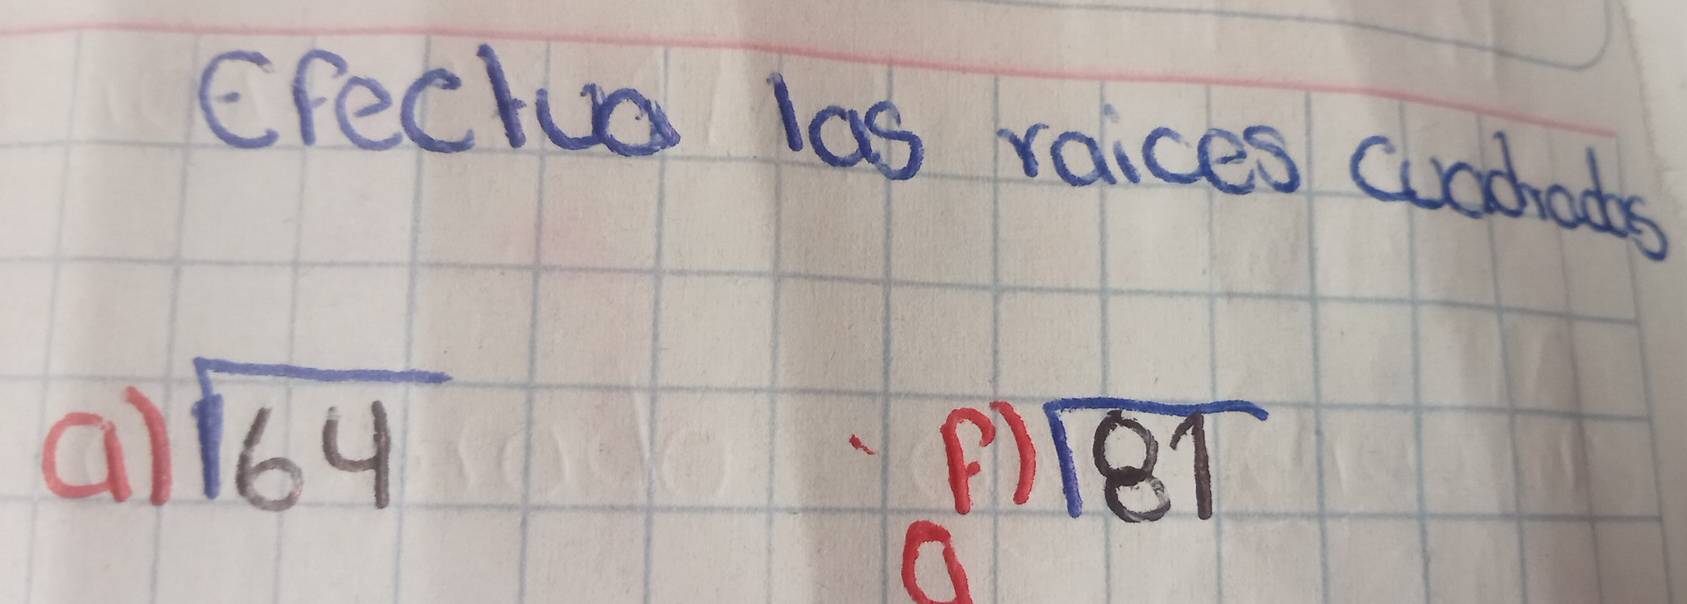 Efectua las raices cuadradas
a) √64 f) √81
g